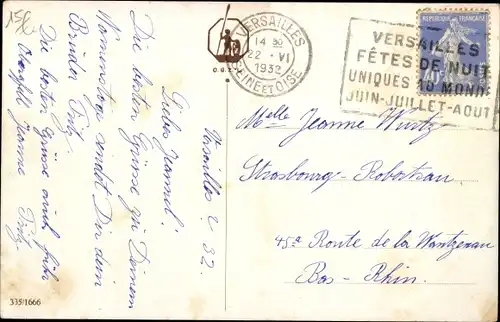 15€
VERSAILLES
14 30
22 - VI
1932
SEINE ET OISE
VERSAILLES
FÊTES DE NUIT
UNIQUES AU MONDE
JUIN-JUILLET-AOUT
REPUBLIQUE FRANÇAISE
Versailles 32.
Liebes Jeannel!
Die besten Grüsse zu Deinem
Namenstage sendet Dir dein
Bruder Fritz
Die besten Grüsse auch für
Jeanne Fritz
Melle Jeanne Wurtz
Strasbourg - Robertsau
45a Route de la Wantzenau
Bas-Rhin.
335/1666